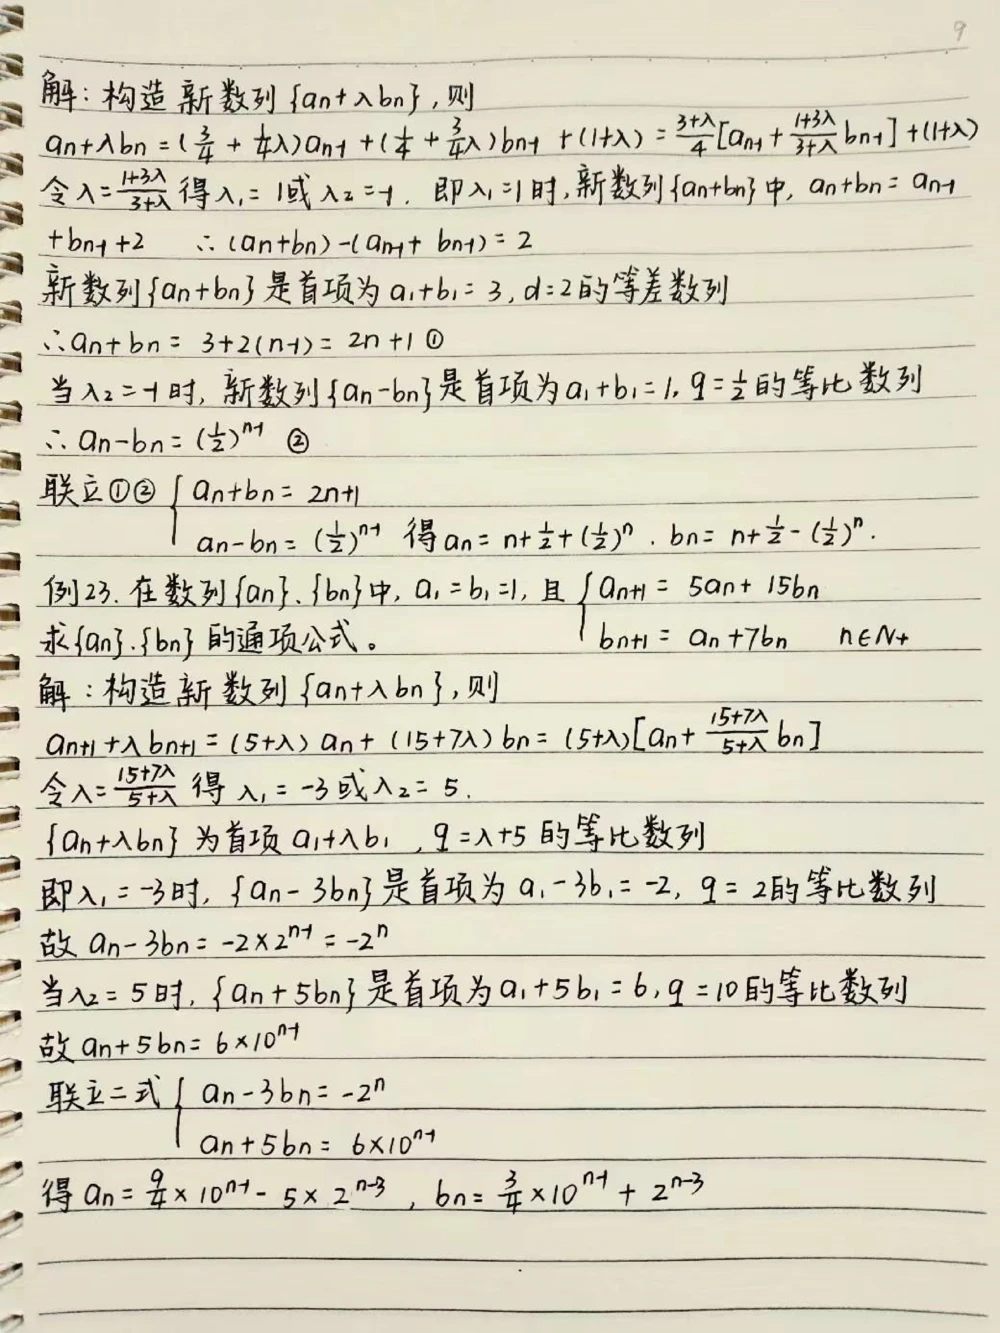 9
解：构造新数列{an+λbn}，则
an+λbn=(3/4+1/4λ)an-1+(1/4+3/4λ)bn-1+(1+λ)=3+λ/4[an-1+1+3λ/3+λ bn-1]+(1+λ)
令λ=1+3λ/3+λ 得λ₁=1或λ₂=-1. 即λ₁=1时,新数列{an+bn}中, an+bn=an-1
+bn-1+2 ∴(an+bn)-(an-1+bn-1)=2
新数列{an+bn}是首项为a₁+b₁=3,d=2的等差数列
∴an+bn=3+2(n-1)=2n+1①
当λ₂=-1时,新数列{an-bn}是首项为a₁+b₁=1,q=1/2的等比数列
∴an-bn=(1/2)ⁿ⁻¹ ②
联立①②{an+bn=2n+1
an-bn=(1/2)ⁿ⁻¹ 得an=n+1/2+(1/2)ⁿ.bn=n+1/2-(1/2)ⁿ.
例23.在数列{an}.{bn}中,a₁=b₁=1,且{an+1=5an+15bn
求{an}.{bn}的通项公式。 bn+1=an+7bn n∈N+
解：构造新数列{an+λbn},则
an+1+λbn+1=(5+λ)an+(15+7λ)bn=(5+λ)[an+15+7λ/5+λ bn]
令λ=15+7λ/5+λ 得λ₁=-3或λ₂=5.
{an+λbn}为首项a₁+λb₁,q=λ+5的等比数列
即λ₁=-3时,{an-3bn}是首项为a₁-3b₁=-2,q=2的等比数列
故an-3bn=-2×2ⁿ⁻¹=-2ⁿ
当λ₂=5时,{an+5bn}是首项为a₁+5b₁=6,q=10的等比数列
故an+5bn=6×10ⁿ⁻¹
联立二式{an-3bn=-2ⁿ
an+5bn=6×10ⁿ⁻¹
得an=9/4×10ⁿ⁻¹-5×2ⁿ⁻³,bn=3/4×10ⁿ⁻¹+2ⁿ⁻³